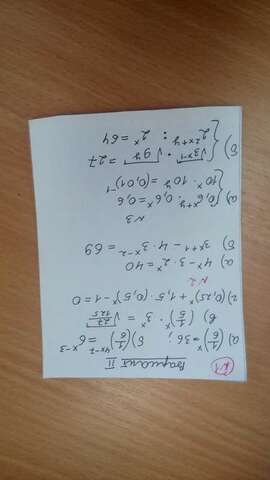 Вариант II
а) (1/6)^x = 36; б) (1/6)^(4x-2) = 6^(x-3)
в) (1/5)^x · 3^x = √(27/125)
г) (0,25)^x + 1,5 · (0,5)^x - 1 = 0
N2
а) 4^x - 3 · 2^x = 40
б) 3^(x+1) - 4 · 3^(x-2) = 69
N3
а) { 0,6^(x+y) : 0,6^x = 0,6
10^x · 10^y = (0,01)^(-1)
б) { √(3^(x-1)) · √(9^y) = 27
2^(2x+y) : 2^x = 64